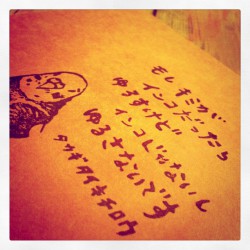 もしキミが
インコだったら
ゆるすけど
インコじゃないし
ゆるさないです
タウギタイキチロウ